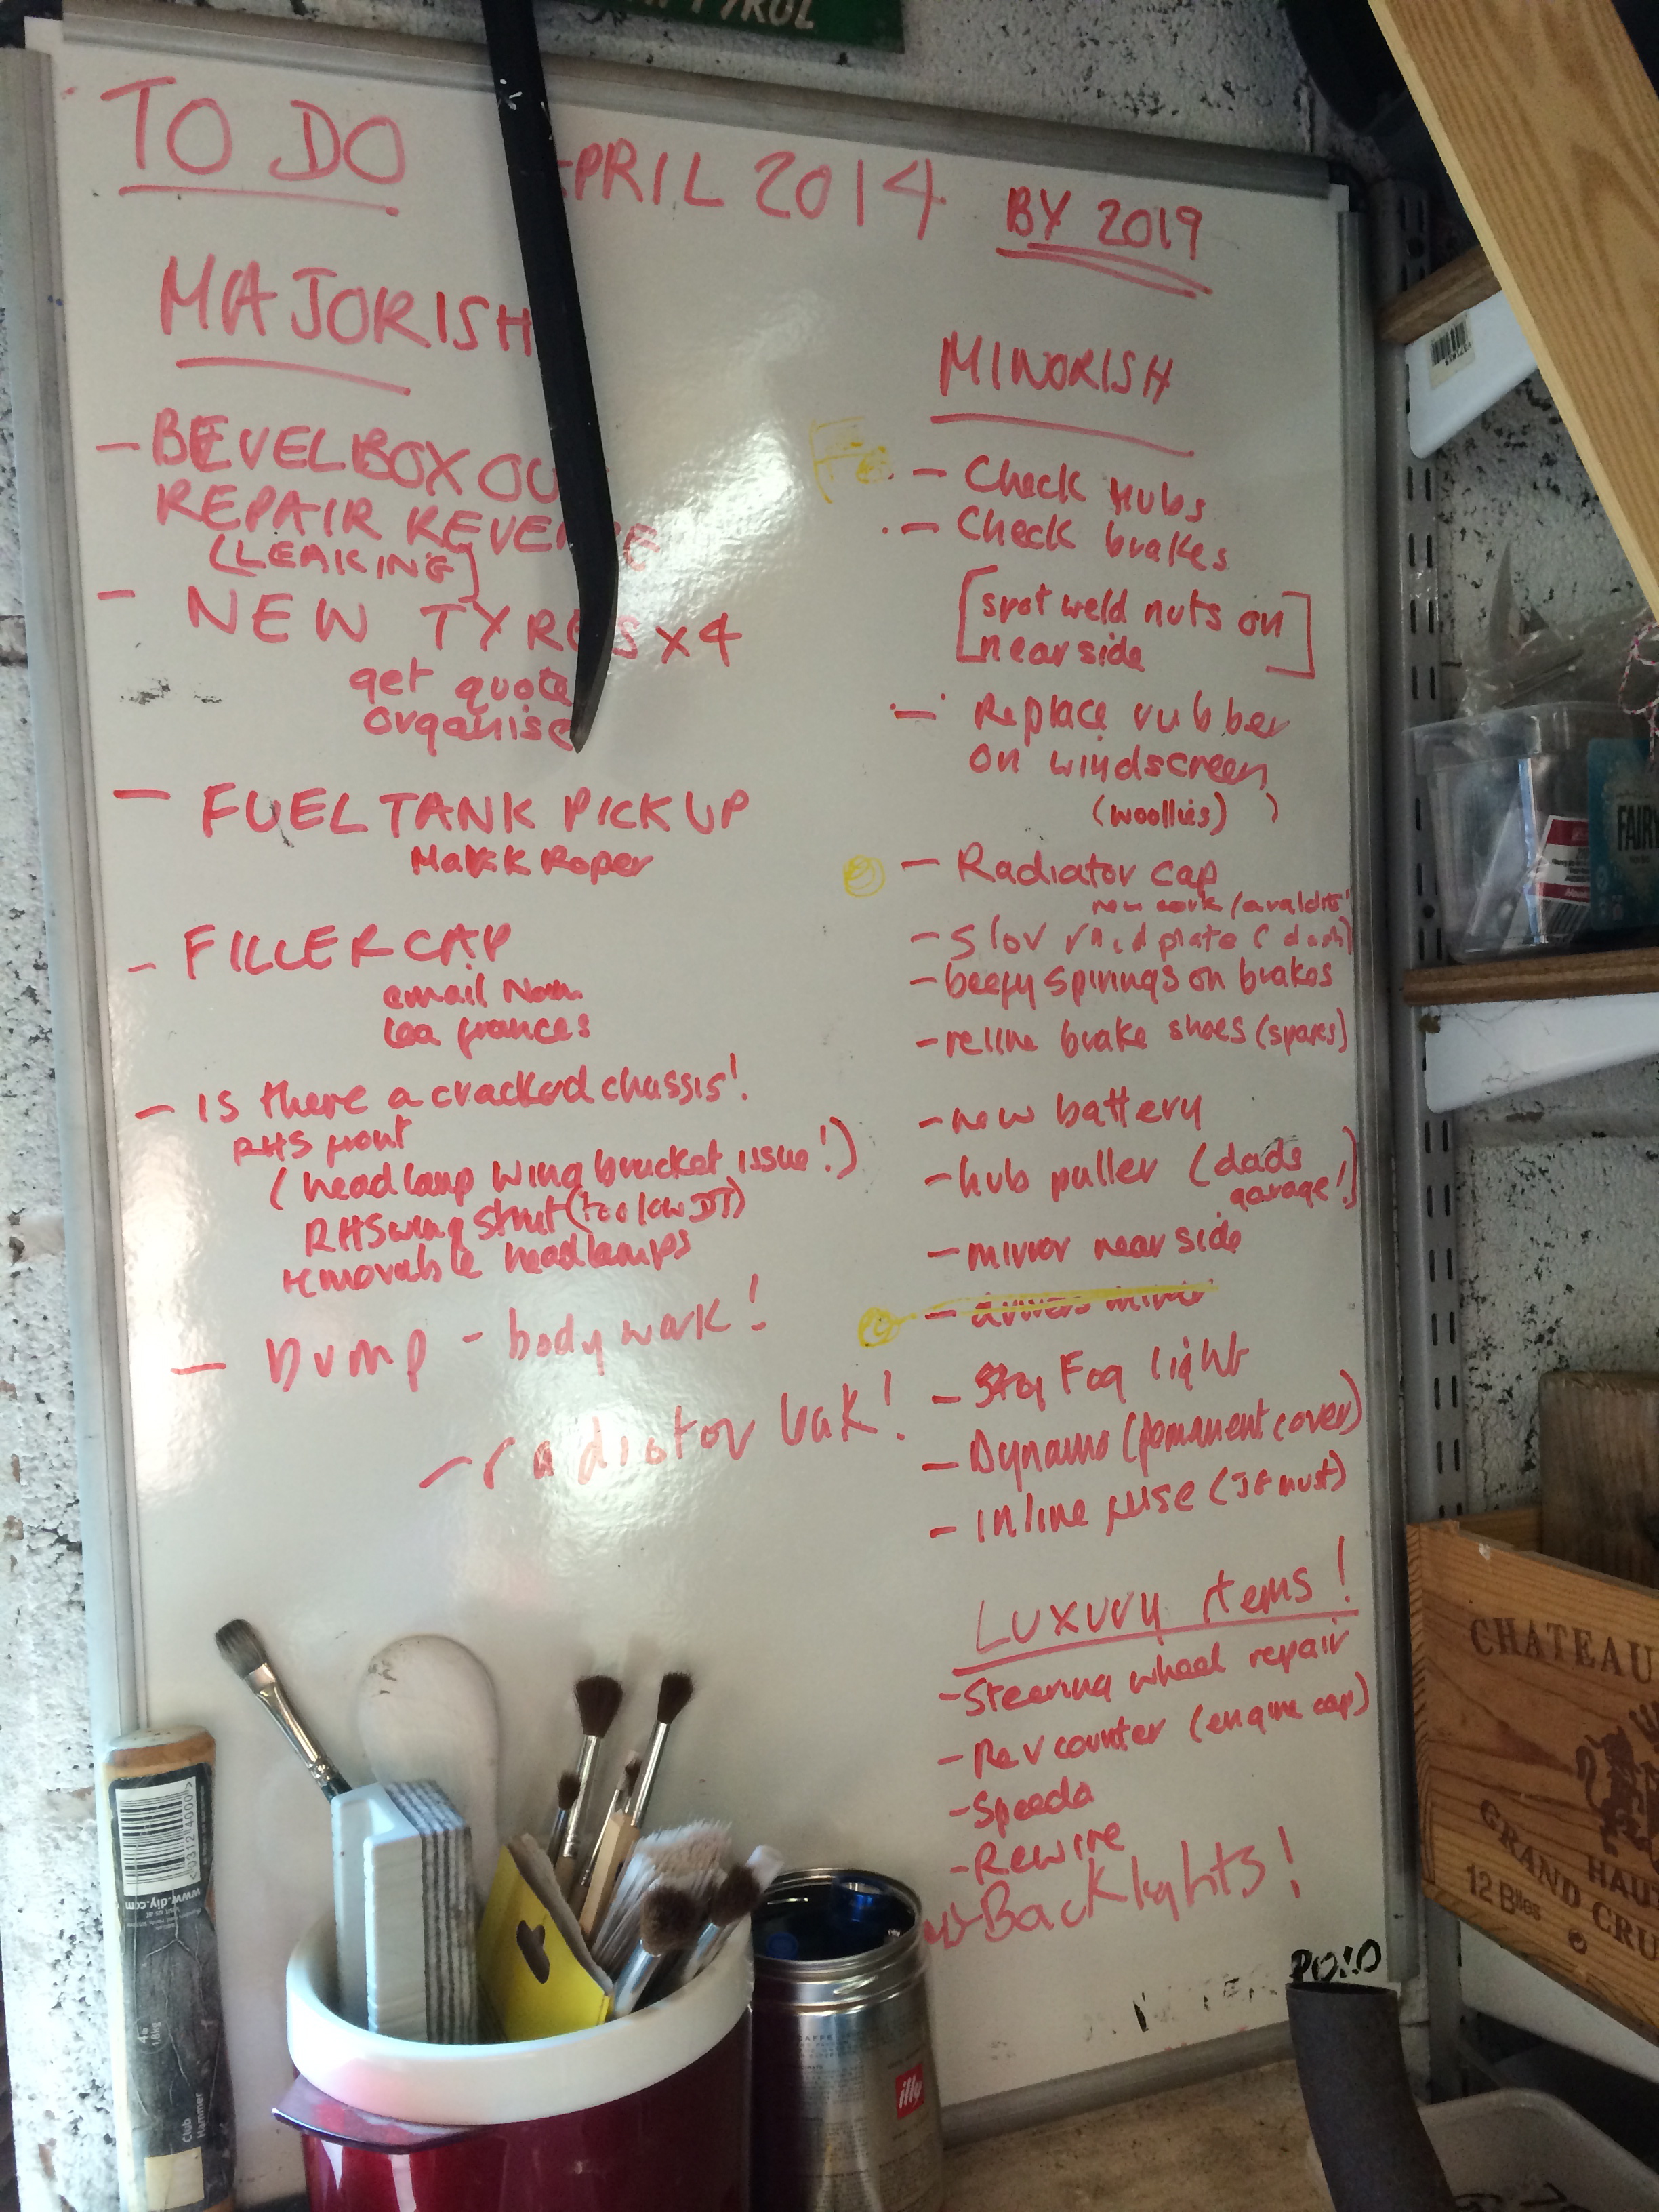 TYROL
TO DO
APRIL 2014
BY 2019
MAJORISH
- BEVELBOX OU
REPAIR REVERSE
(LEAKING)
- NEW TYRES x4
get quote
organise
- FUEL TANK PICK UP
Mark Roper
- FILLER CAP
email
lea frances
- IS there a cracked chassis!
RHS front
(headlamp wing bracket issue!)
RHS wing strut (too low DT)
removable headlamps
- Dump - body work!
- radiator leak!
MINORISH
- Check Hubs
- Check brakes
[spot weld nuts on
near side]
- Replace rubber
on windscreen
(woollies)
- Radiator cap
new cork /
- plate (dash)
- beefy springs on brakes
- reline brake shoes (spares)
- new battery
- hub puller (dads
garage!)
- mirror near side
- drivers mirror
- Fog light
- Dynamo (permanent cover)
- Inline fuse (JG must)
Luxury items!
- Steering wheel repair
- Rev counter (engine cap)
- Speedo
- Rewire
- Back lights!
FAIRY
CHATEAU
HAUT
GRAND CRU
12 Btles
www.diy.com
4lb
1.8kg
Club
Hammer
illy